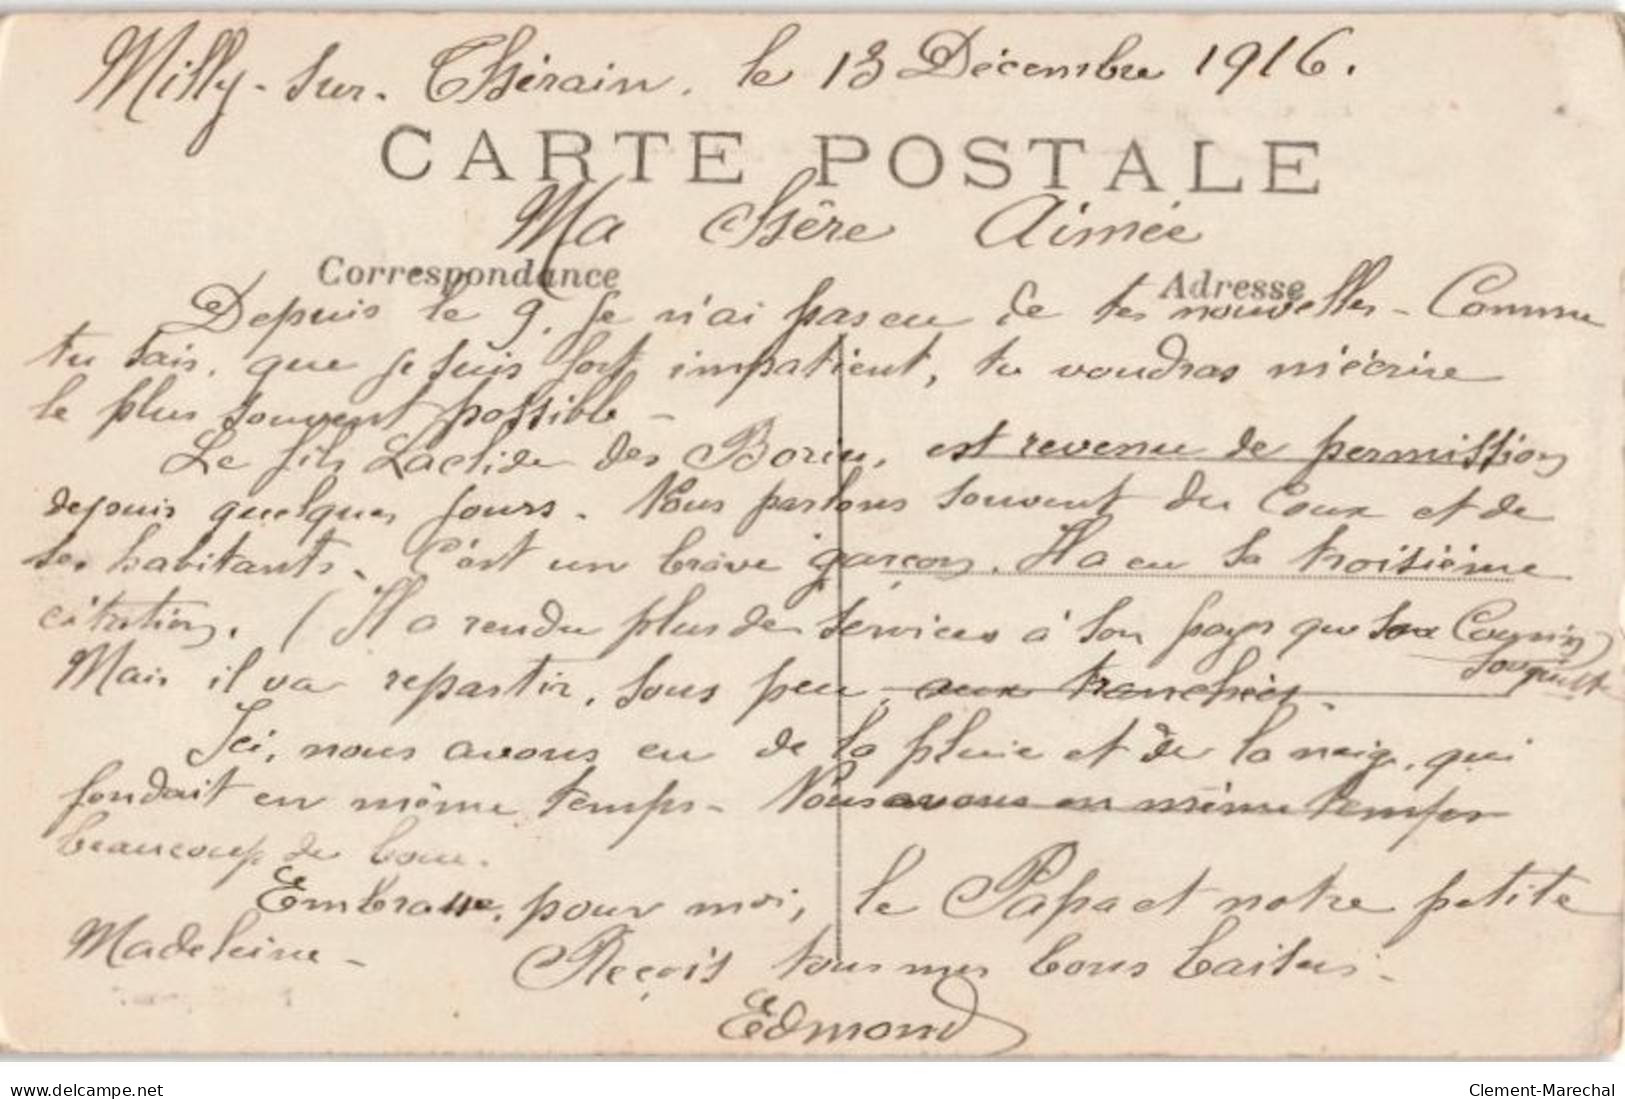 Milly-sur-Thérain. le 13 Décembre 1916.
CARTE POSTALE
Ma Chère Aimée
Correspondance
Adresse
Depuis le 9. je n'ai pas eu de tes nouvelles - Comme
tu sais, que je suis fort impatient, tu voudras m'écrire
le plus souvent possible -
Le fils des est revenu de permission
depuis quelques jours. Nous parlons souvent du et de
ses habitants. C'est un brave garçon. Il a eu sa troisième
citation. (Il a rendu plus de services à son pays que son Cousin
Mais il va repartir, sous peu, aux tranchées.
Ici, nous avons eu de la pluie et de la neige, qui
fondait en même temps - Nous avons en même temps
beaucoup de boue.
Embrasse, pour moi, le Papa et notre petite
Madeleine - Reçois tous mes bons baisers -
Edmond
delcampe.net
Clement-Marechal